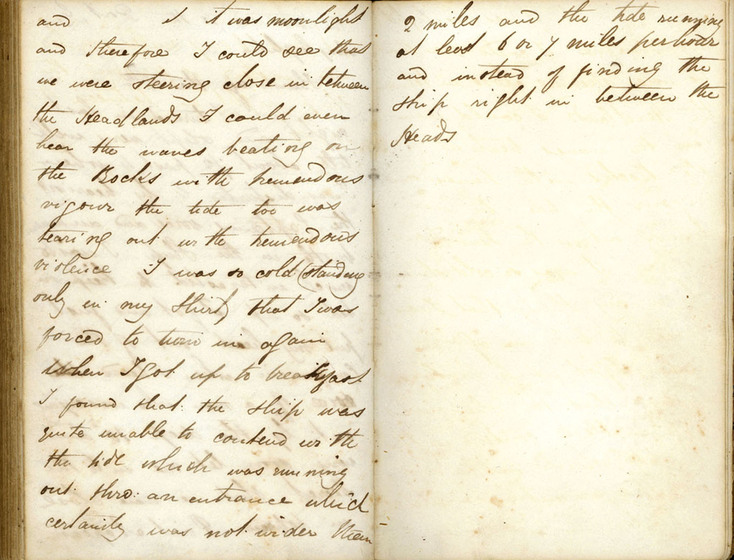 and it was moonlight
and therefore I could see that
we were steering close in between
the Headlands I could even
hear the waves beating on
the Rocks with tremendous
vigour the tide too was
tearing out with tremendous
violence I was so cold (standing
only in my shirt) that I was
forced to turn in again
When I got up to breakfast
I found that the ship was
quite unable to contend with
the tide which was running
out thro: an entrance which
certainly was not wider than
2 miles and the tide running
at least 6 or 7 miles per hour
and instead of finding the
ship right in between the
Heads